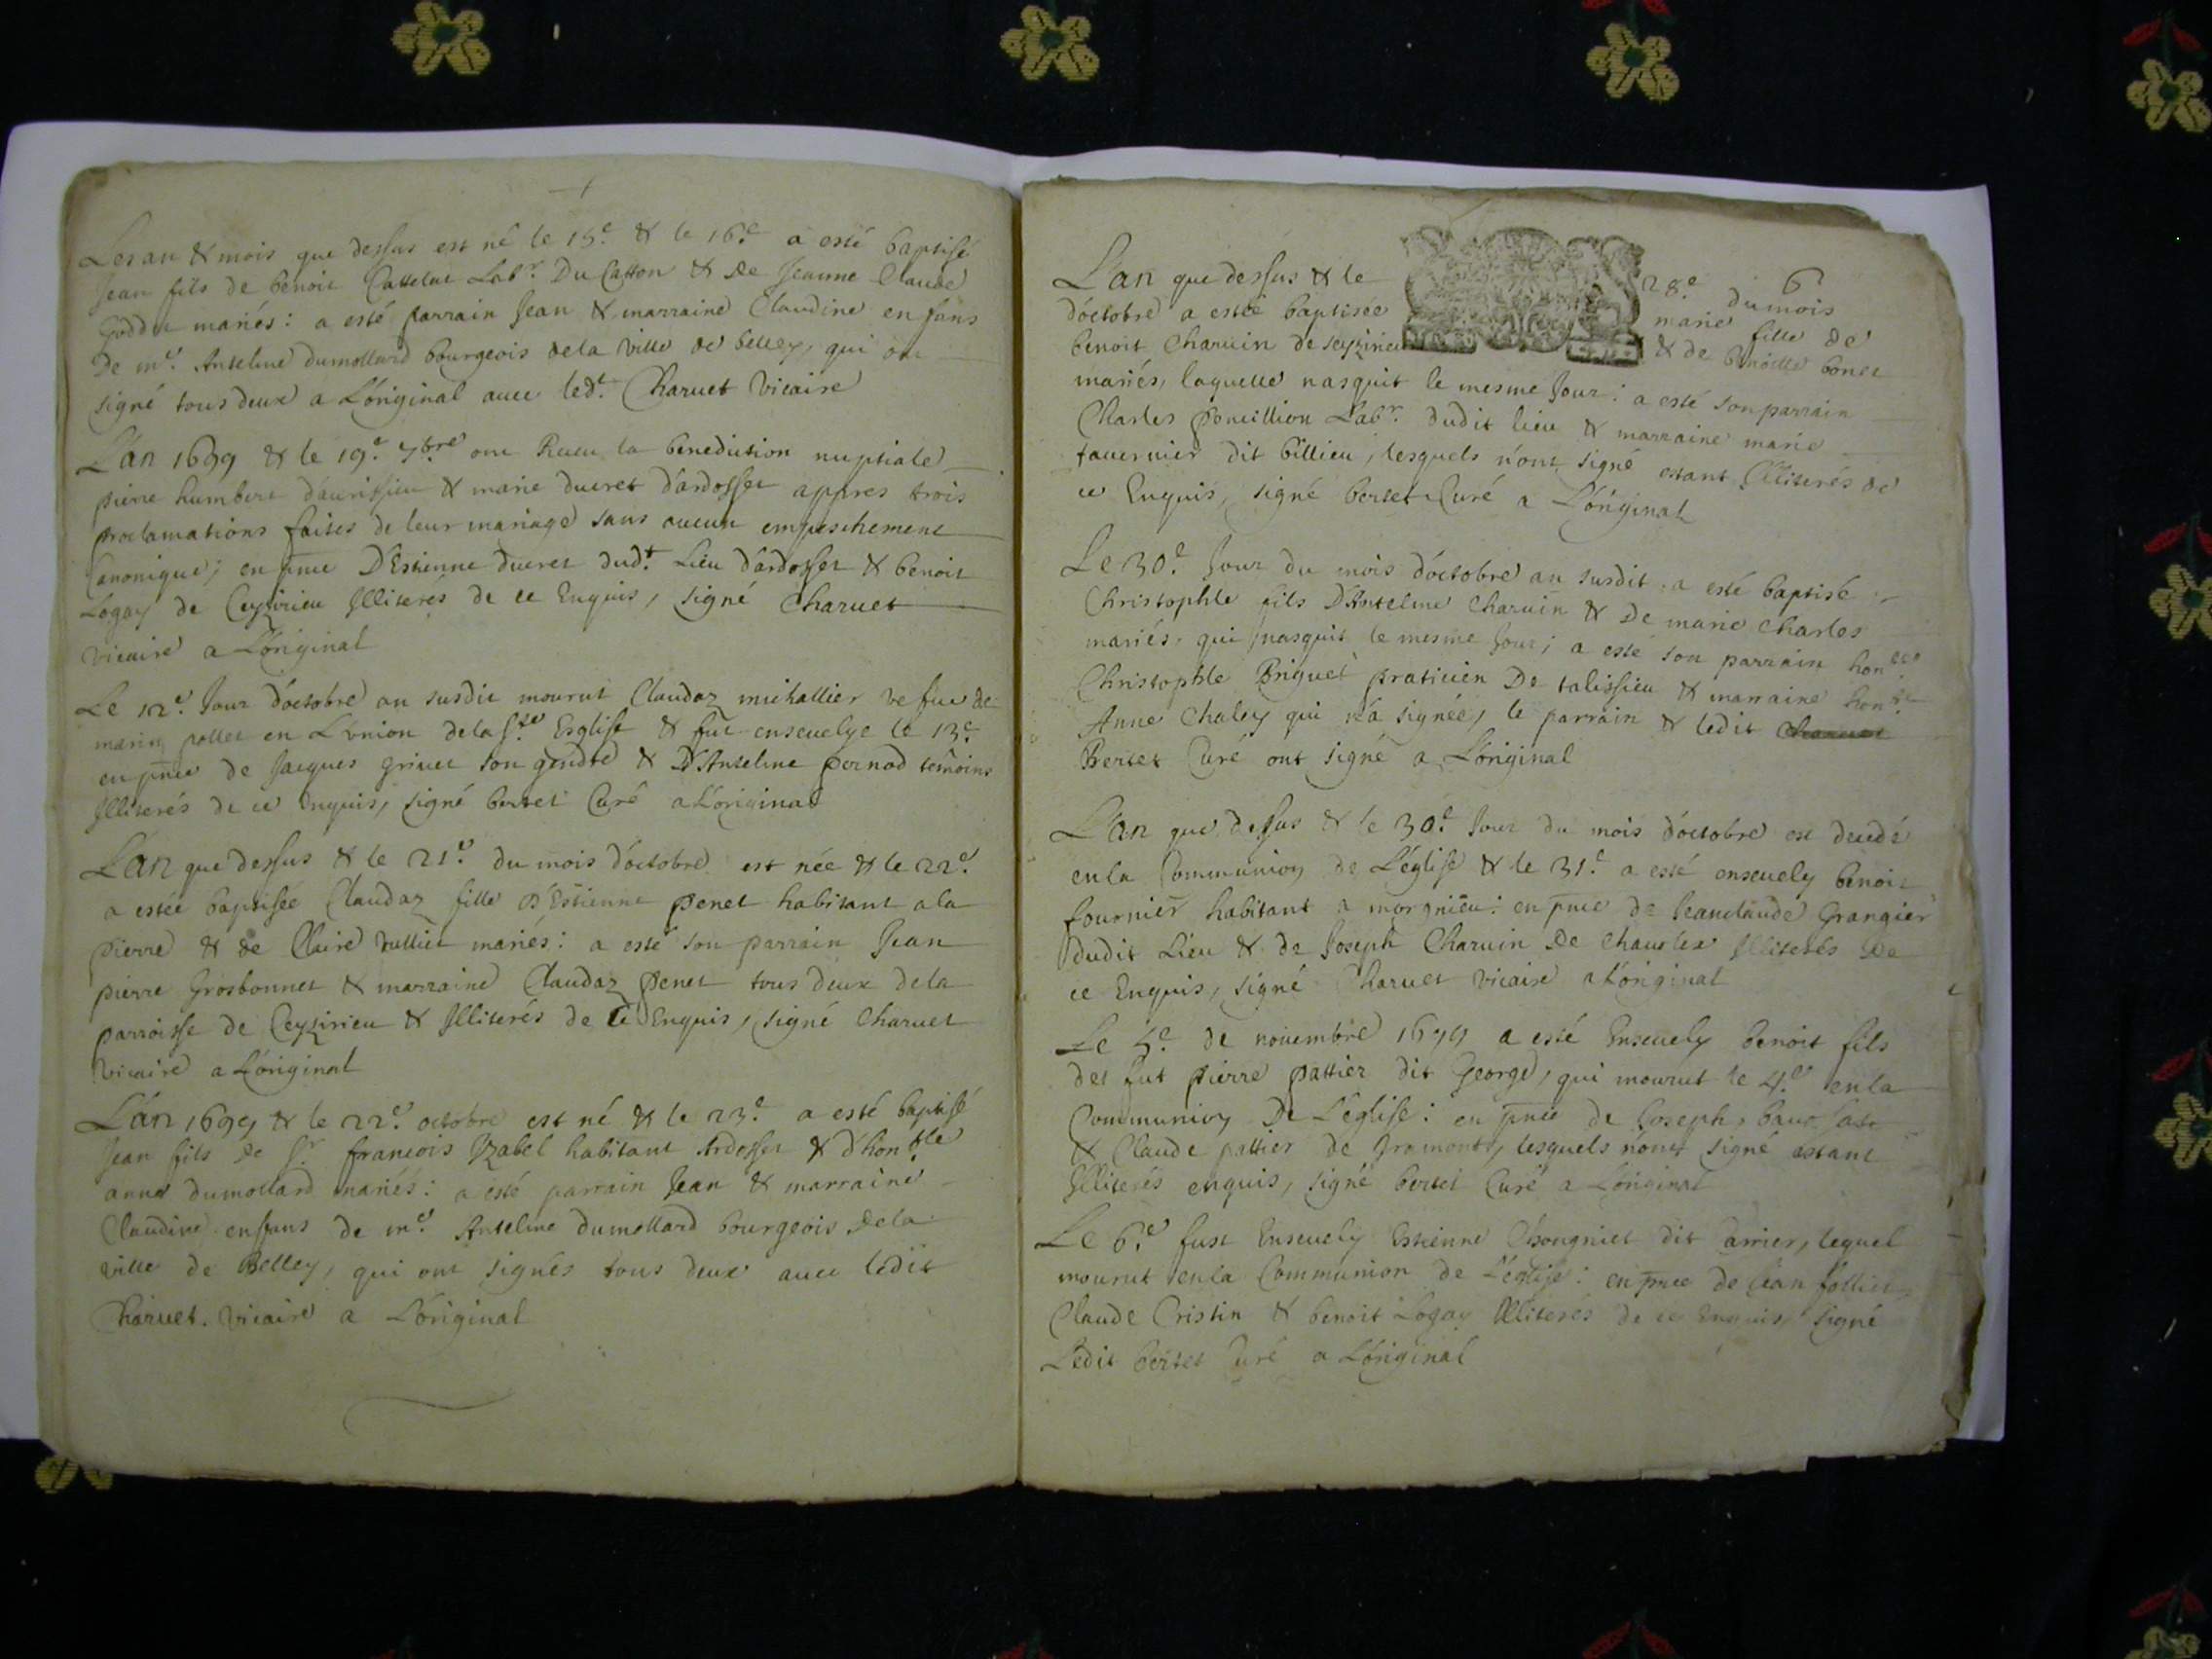 Les an & mois que dessus est né le 15.e & le 16.e a esté baptisé
Jean fils de benoit Cattelat Labr. Du Catton & De Jeanne Claude
Goddet mariés : a esté parrain Jean & marraine Claudine enfans
De me. Antelme dumollard bourgeois dela ville de belley, qui ont
signé tous deux a L'original avec led.t Charuet Vicaire
L'an 1699 & le 19.e 7bre ont Receu la benediction nuptiale
pierre humbert d'aurissieu & marie ducret d'ardosset appres trois
proclamations faites de leur mariage sans aucun empeschement
Canonique ; en pnce D'Estienne ducret dud.t Lieu d'ardosset & benoit
Logay de Ceyzirieu Illiterés de ce Enquis, signé Charuet
vicaire a L'original
Le 12.e Jour d'octobre an susdit mourut Claudaz michallier vefue de
marin pollet en L'vnion dela S.te Esglise & fut enseuelye le 13.e
en pnce de Jacques griuet son gendre & D'Antelme pernod temoins
Illiterés de ce Enquis, signé bertet Curé a L'original
L'an que dessus & le 21.e du mois d'octobre est née & le 22.e
a estée baptisée Claudaz fille D'Estienne penet habitant a la
pierre & de Claire vullier mariés : a esté son parrain Jean
pierre Grosbonnet & marraine Claudaz penet tous deux dela
parroisse de Ceyzirieu & Illiterés de ce Enquis, signé Charuet
Vicaire a L'original
L'an 1699 & le 22.e octobre est né & le 23.e a esté baptisé
Jean fils de Sr francois Yzabel habitant Ardosset & d'honble
anne dumollard mariés : a esté parrain Jean & marraine
Claudine enfans de me. Antelme dumollard bourgeois dela
ville de Belley, qui ont signés tous deux avec ledit
Charuet. vicaire a L'original
6
L'an que dessus & le 28.e du mois
d'octobre a estée baptisée marie fille de
benoit Charuin de seyzirieu & de benoitte bonet
mariés, laquelle nasquit le mesme Jour : a esté son parrain
Charles poncillion Labr. dudit lieu & marraine marie
tauernier dit billieu, lesquels n'ont signé estant Illiterés de
ce Enquis, signé bertet Curé a L'original
Le 30.e Jour du mois d'octobre an susdit a esté baptisé
Christophle fils D'Antelme Charuin & De marie Charles
mariés, qui nasquit le mesme Jour ; a esté son parrain hon.ble
Christophle Briguet praticien De talissieu & marraine hon.ble
Anne Chaley qui n'a signée, le parrain & ledit Charuet
Bertet Curé ont signé a L'original
L'an que dessus & le 30.e Jour du mois d'octobre est decedé
en la Communion de L'église & le 31.e a esté enseuely benoit
fournier habitant a morgnieu : en pnce de Jeanclaude Grangier
dudit Lieu & de Joseph Charuin De chauolex Illiterés De
ce Enquis, signé Charuet vicaire a L'original
Le 5.e de nouembre 1699 a esté Enseuely benoit fils
des fut pierre pattier dit George, qui mourut le 4.e en la
Communion De L'église : en pnce de Joseph
& Claude pattier de gramont, lesquels n'ont signé estant
Illiterés enquis, signé bertet Curé a L'original
Le 6.e fust Enseuely Estienne dit Carrier, lequel
mourut en la Communion de L'église : en pnce de Jean folliet
Claude Cristin & benoit Logay Illiterés de ce Enquis signé
Ledit bertet Curé a L'original